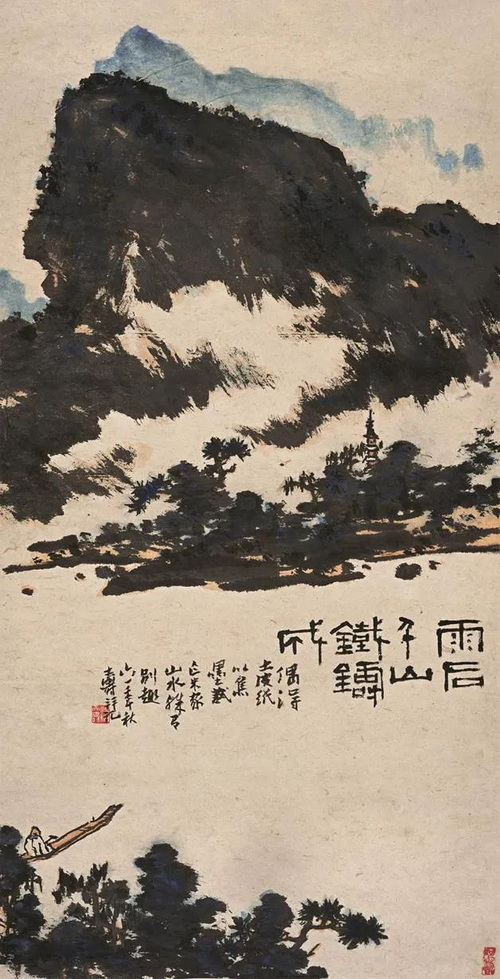 雨后
千山
鐵鑄
成
偶得
土皮紙
以焦
墨戲
米家
山水殊有
別趣
六一年秋
壽 記